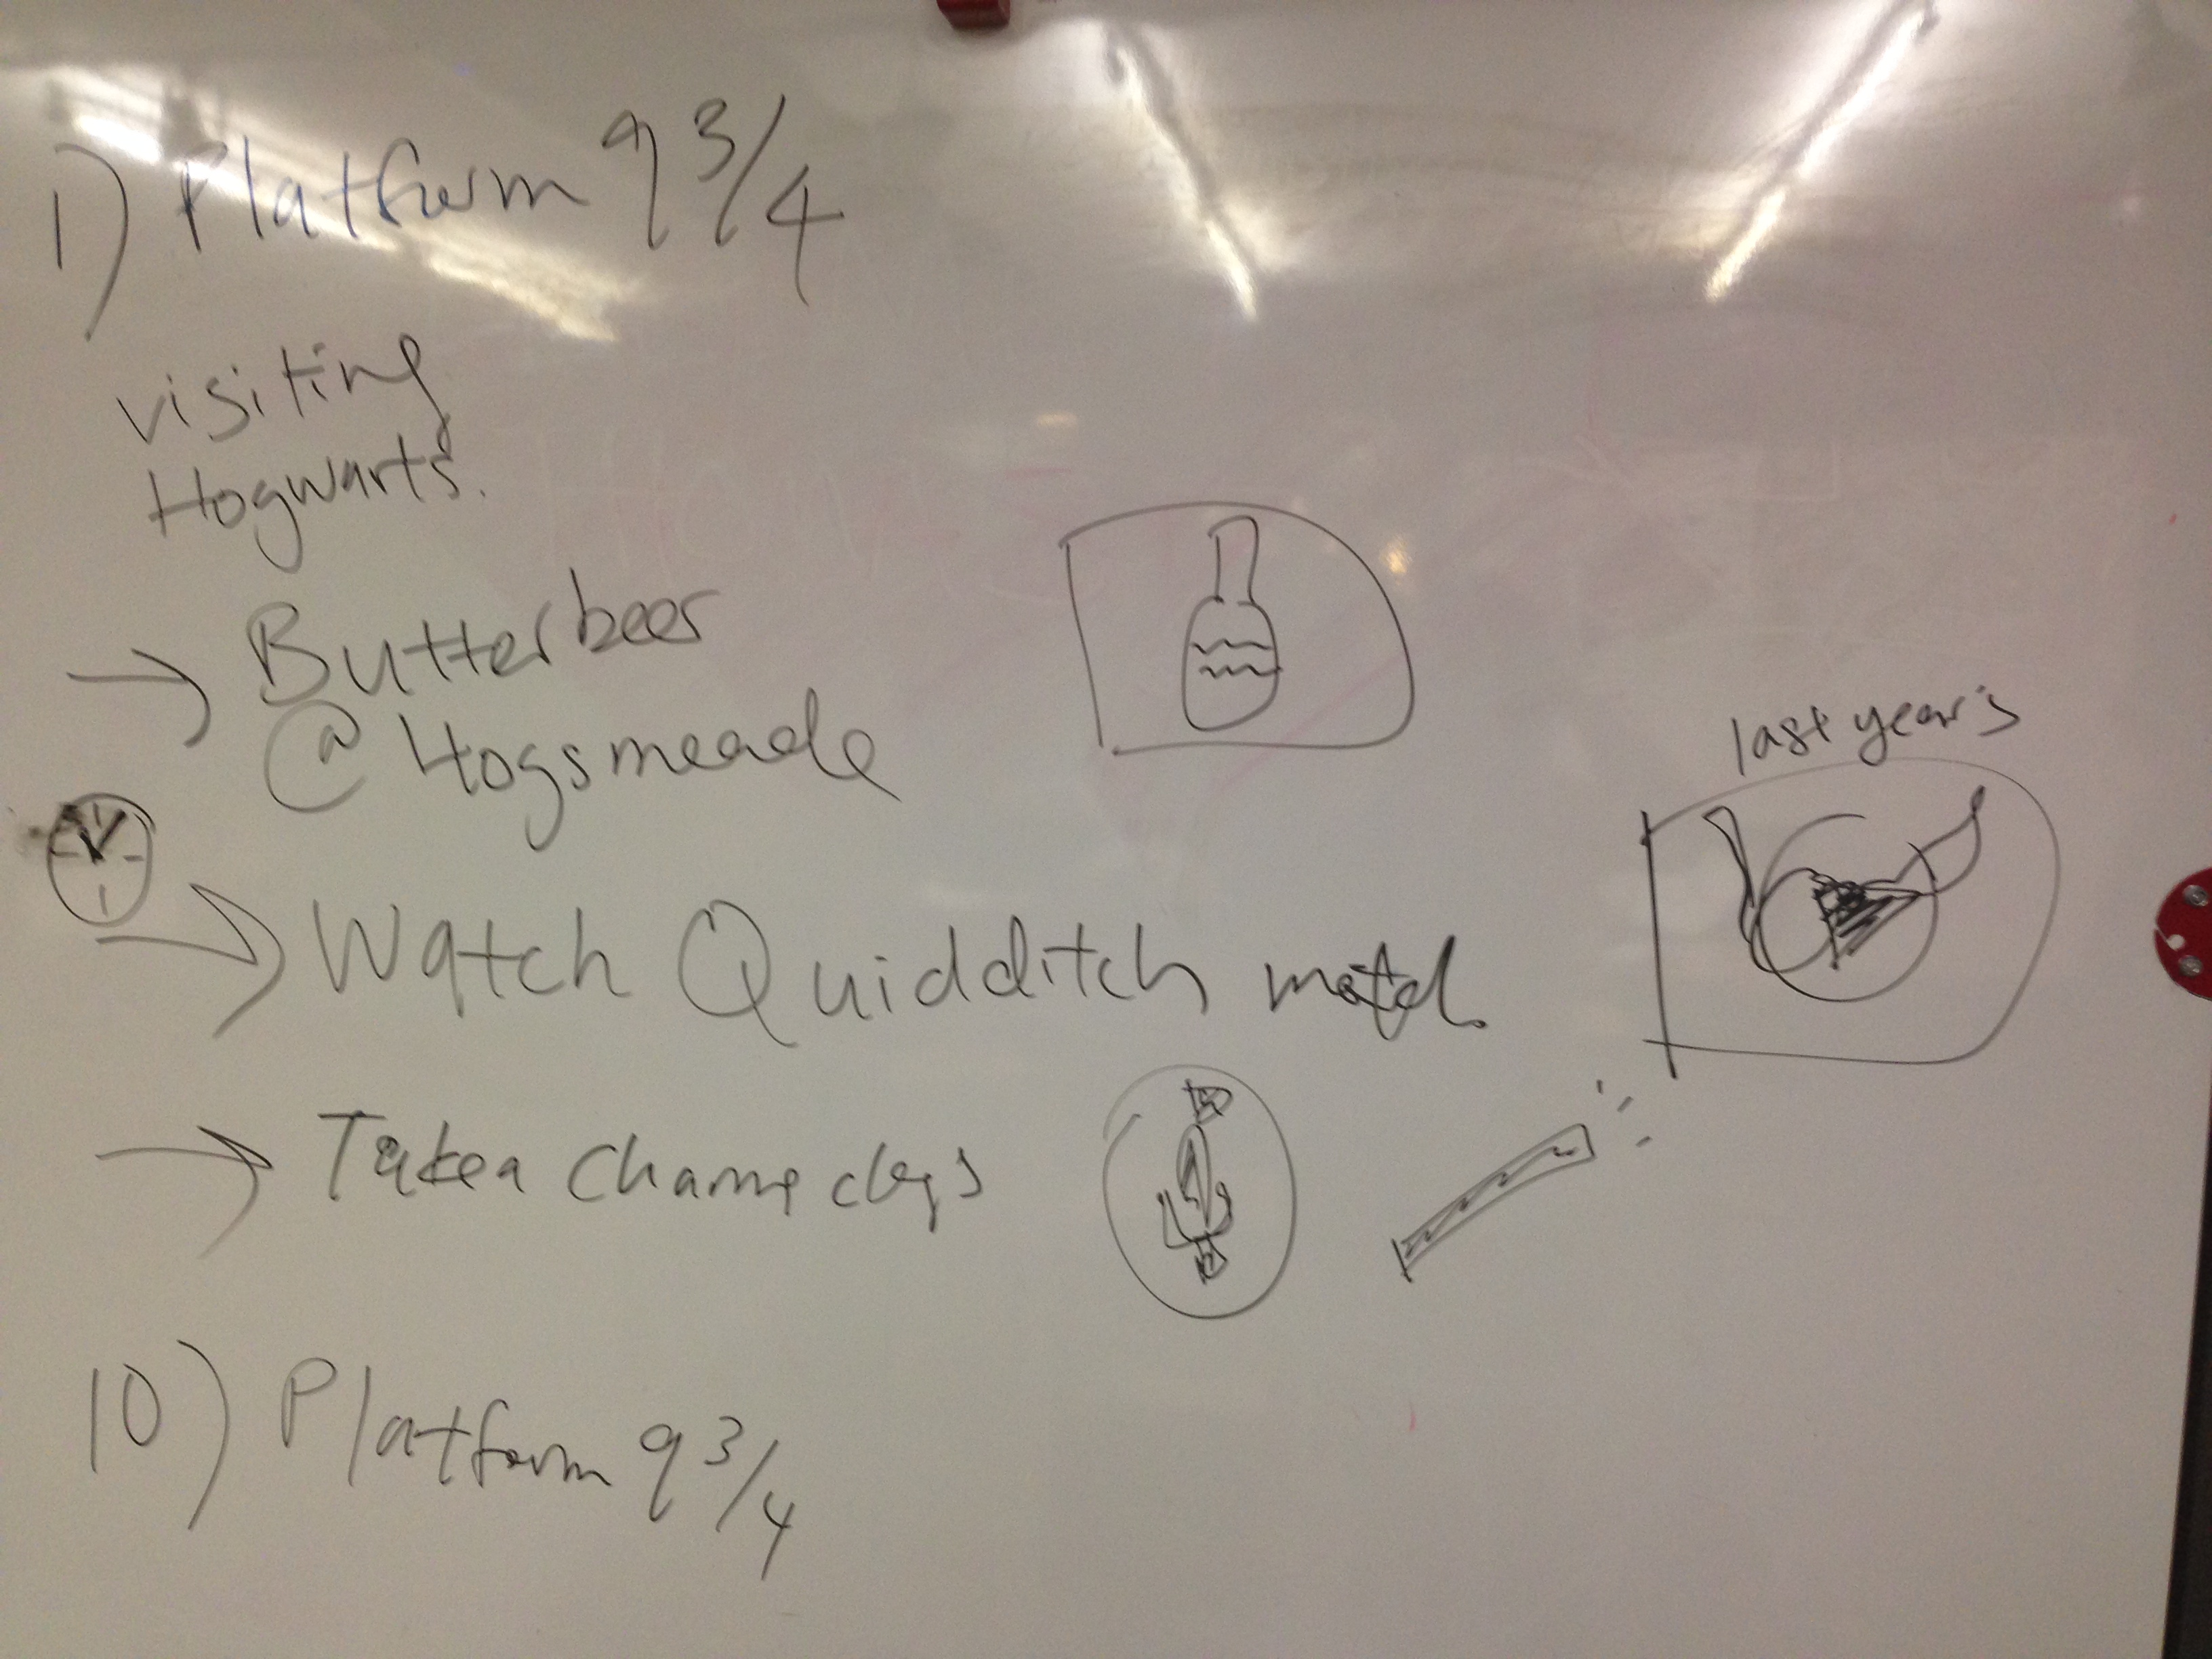 1) Platform 9 3/4
visiting
Hogwarts.
→ Butterbeer
@ Hogsmeade
last year's
→ Watch Quidditch match
→ Take a Charms class
10) Platform 9 3/4